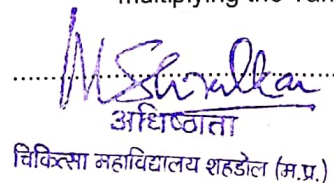 multiplying the
अधिष्ठाता
चिकित्सा महाविद्यालय शहडोल (म.प्र.)